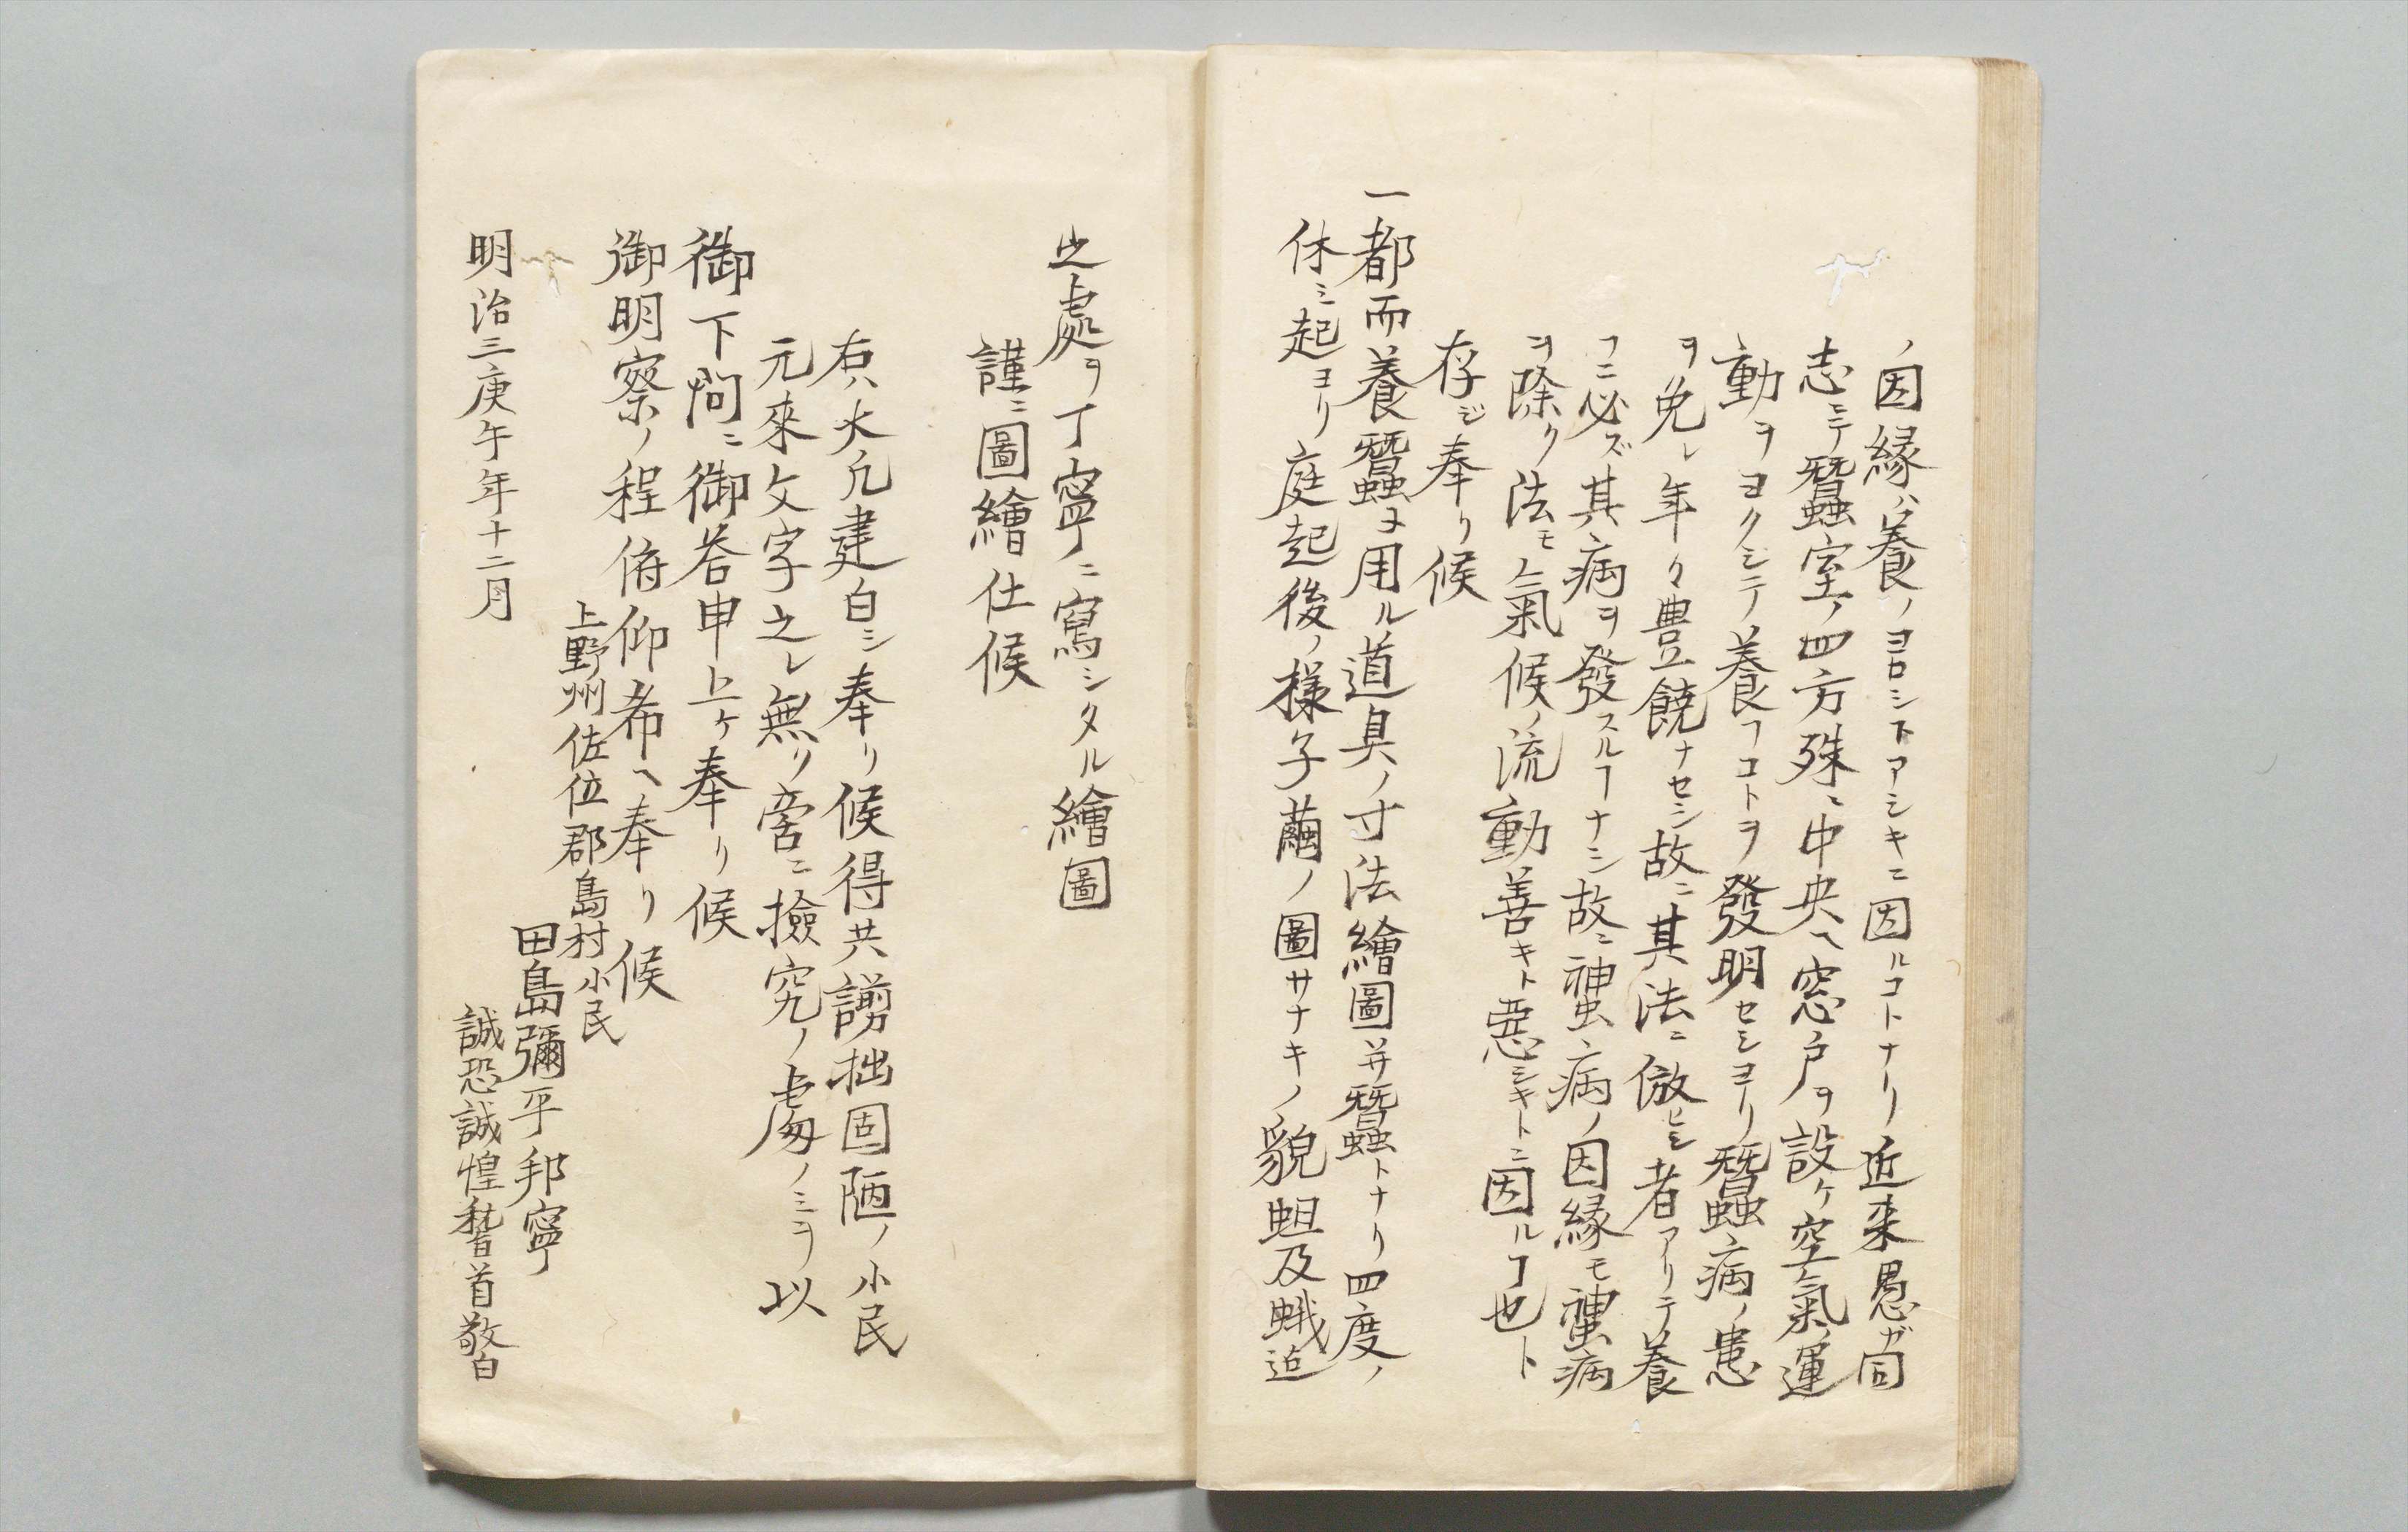 ノ因縁ハ養ノヨロシト アシキニ因ルコトナリ近来愚ガ同
志ニテ蠶室ノ四方殊ニ中央ヘ窓戸ヲ設ケ空氣ノ運
動ヲヨクシテ養フコトヲ發明セシヨリ蠶病ノ患
ヲ免レ年々豊饒ナセシ故ニ其法ニ倣ヒシ者アリテ養
フニ必ズ其病ヲ發スルヿナシ故ニ𧌒病ノ因縁モ𧌒病
ヲ除ク法モ氣候ノ流動善キト悪シキトニ因ルヿ也ト
存ジ奉リ候
一都而養蠶ニ用ル道具ノ寸法繪圖并蠶トナリ四度ノ
休ミ起ヨリ庭起後ノ様子繭ノ圖サナキノ貌蛆及蛾迠
之處ヲ丁寧ニ寫シタル繪圖
謹ニ圖繪仕候
右ハ大凢建白シ奉リ候得共謭拙固陋ノ小民
元來文字之レ無リ旁ニ撿究ノ處ノミヲ以
御下問ニ御答申上ケ奉リ候
御明察ノ程俯仰希ヘ奉リ候
上野州佐位郡島村小民
田島彌平邦寧
誠恐誠惶稽首敬白
明治三庚午年十二月